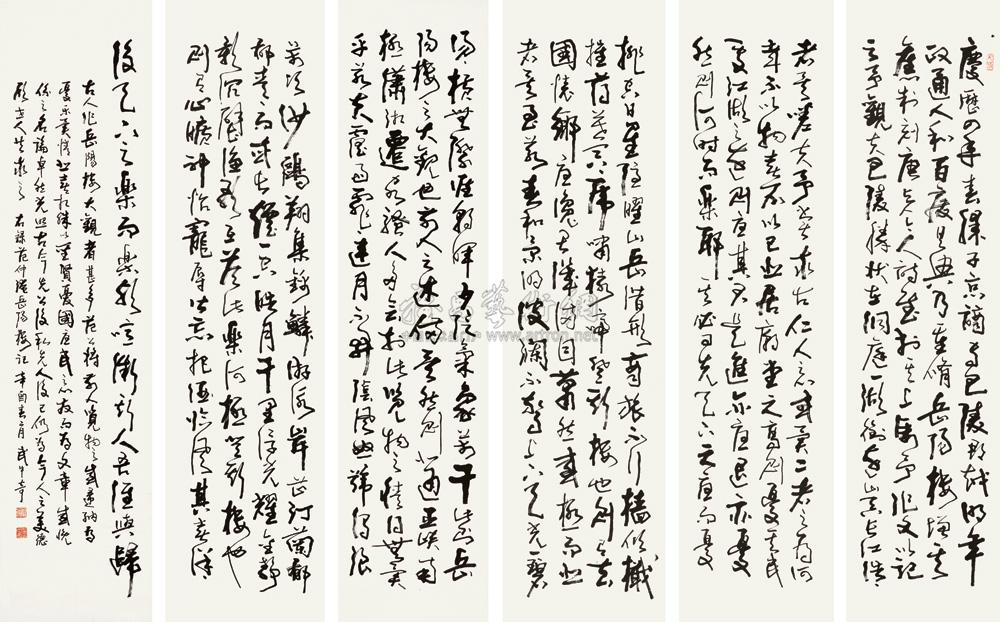 慶曆四年春滕子京謫守巴陵郡越明年
政通人和百廢具興乃重脩岳陽樓增其
舊制刻唐賢今人詩賦於其上屬予作文以記
之予觀夫巴陵勝狀在洞庭一湖銜遠山吞長江浩浩
者矣嗟夫予嘗求古仁人之心或異二者之為何
哉不以物喜不以己悲居廟堂之高則憂其民
處江湖之遠則憂其君是進亦憂退亦憂
然則何時而樂耶其必曰先天下之憂而憂
排空日星隱曜山岳潛形商旅不行檣傾楫
摧薄暮冥冥虎嘯猿啼登斯樓也則有去
國懷鄉憂讒畏譏滿目蕭然感極而悲
者矣至若春和景明波瀾不驚上下天光一碧
湯湯橫無際涯朝暉夕陰氣象萬千此岳
陽樓之大觀也前人之述備矣然則北通巫峽南
極瀟湘遷客騷人多會於此覽物之情得無異
乎若夫霪雨霏霏連月不開陰風怒號濁浪
萬頃沙鷗翔集錦鱗游泳岸芷汀蘭郁
郁青青而或長煙一空皓月千里浮光耀金靜
影沉璧漁歌互答此樂何極登斯樓也
則有心曠神怡寵辱皆忘把酒臨風其喜洋
後天下之樂而樂歟噫微斯人吾誰與歸
古人作岳陽樓大觀者甚多范公將前人覽物之感盡納為
憂樂異情悲喜殊以至賢憂國憂民之志故而為文章
係之名論卓然光照古今先公後私先人後己仍為今人之美德
願世人共求之 右錄范仲淹岳陽樓記 辛酉春月 武中奇